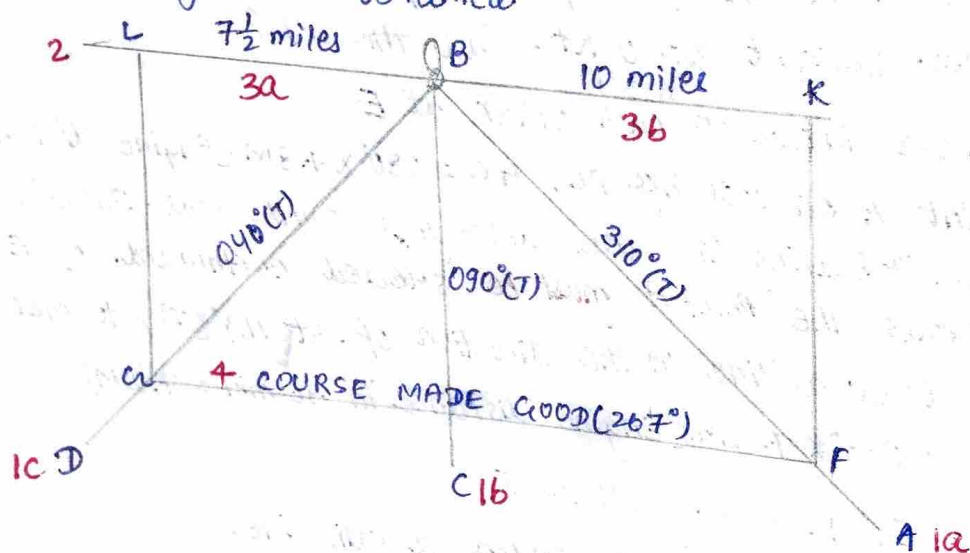 2 L 7½ miles B 10 miles K
3a 3b
040°(T) 090°(T) 310°(T)
G 4 COURSE MADE GOOD (267°)
F
1c D C 1b
A 1a